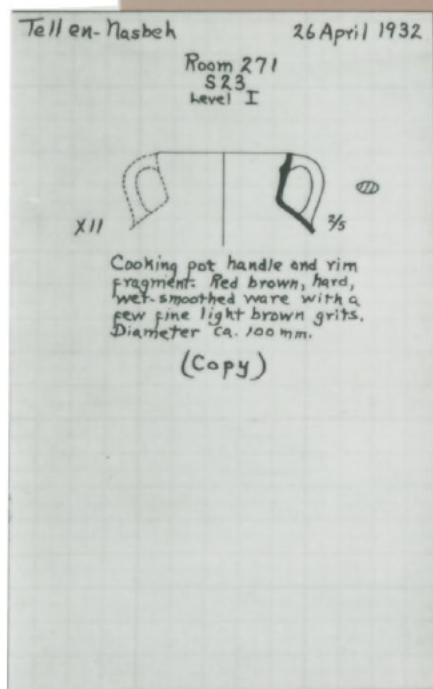 Tell en-Nasbeh 26 April 1932
Room 271
S23
Level I
X11
2/5
Cooking pot handle and rim
fragment. Red brown, hard,
wet-smoothed ware with a
few fine light brown grits.
Diameter ca. 100 mm.
(Copy)